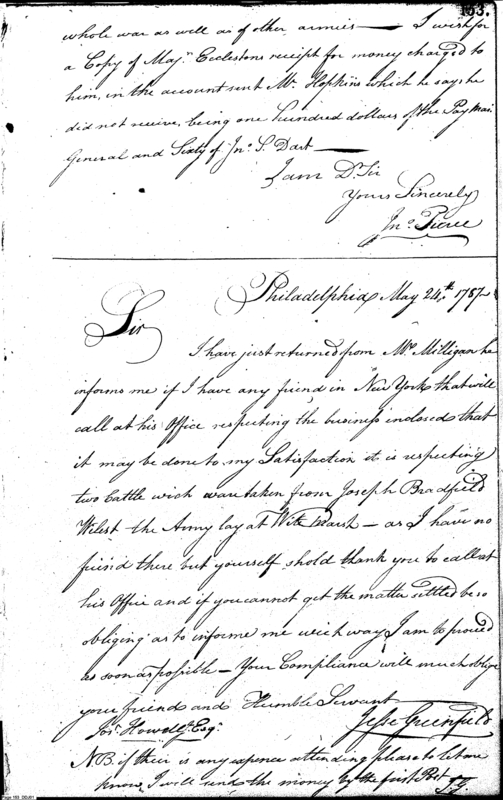 153.
whole war as well as of other armies — I wish for
a Copy of Majr. Ecclestons receipt for money charged to
him, in the account sent Mr. Hopkins which he says he
did not receive, being one hundred dollars of the Pay Mas.
General and Sixty of Jno. S. Dart —
I am Dr. Sir
Yours Sincerely
Jno. Pierce
Philadelphia May 24th. 1787
Sir
I have just returned from Mr. Milligan he
informs me if I have any friend in New York that will
call at his Office respecting the business inclosed that
it may be done to my Satisfaction it is respecting
two Cattle wich ware taken from Joseph Bradfield
Wilest the Army lay at Wite Marsh — as I have no
friend there but yourself shold thank you to call at
his Office and if you cannot get the matter settled be so
obliging as to informe me wich way I am to proceed
as soon as possible — Your Compliance will much oblige
your friend and Humble Servant
Jos. Howell Jr. Esqr.
Jesse Greenfield
NB. if their is any expence attending please to let me
know, I will send the money by the first Post J.G.
Page 153